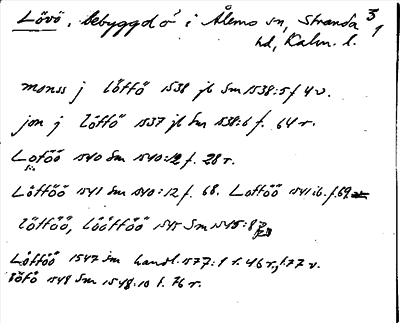 Lövö, bebyggd ö i Ålems sn, Stranda 3
hd, Kalm. l. 1
monss j löffö 1538 jb Sm 1538:5 f 4 v.
jon j löffö 1537 jb Sm 1538:6 f. 64 r.
Loföö 1540 Sm 1540:12 f. 28 r.
Löfföö 1541 Sm 1540:12 f. 68. Lofföö 1541 ib. f. 69
löfföö, lööfföö 1545 Sm 1545:8
Löfföö 1547 Sm handl. 1577:1 f. 46 r, f. 77 v.
löfö 1548 Sm 1548:10 f. 76 r.